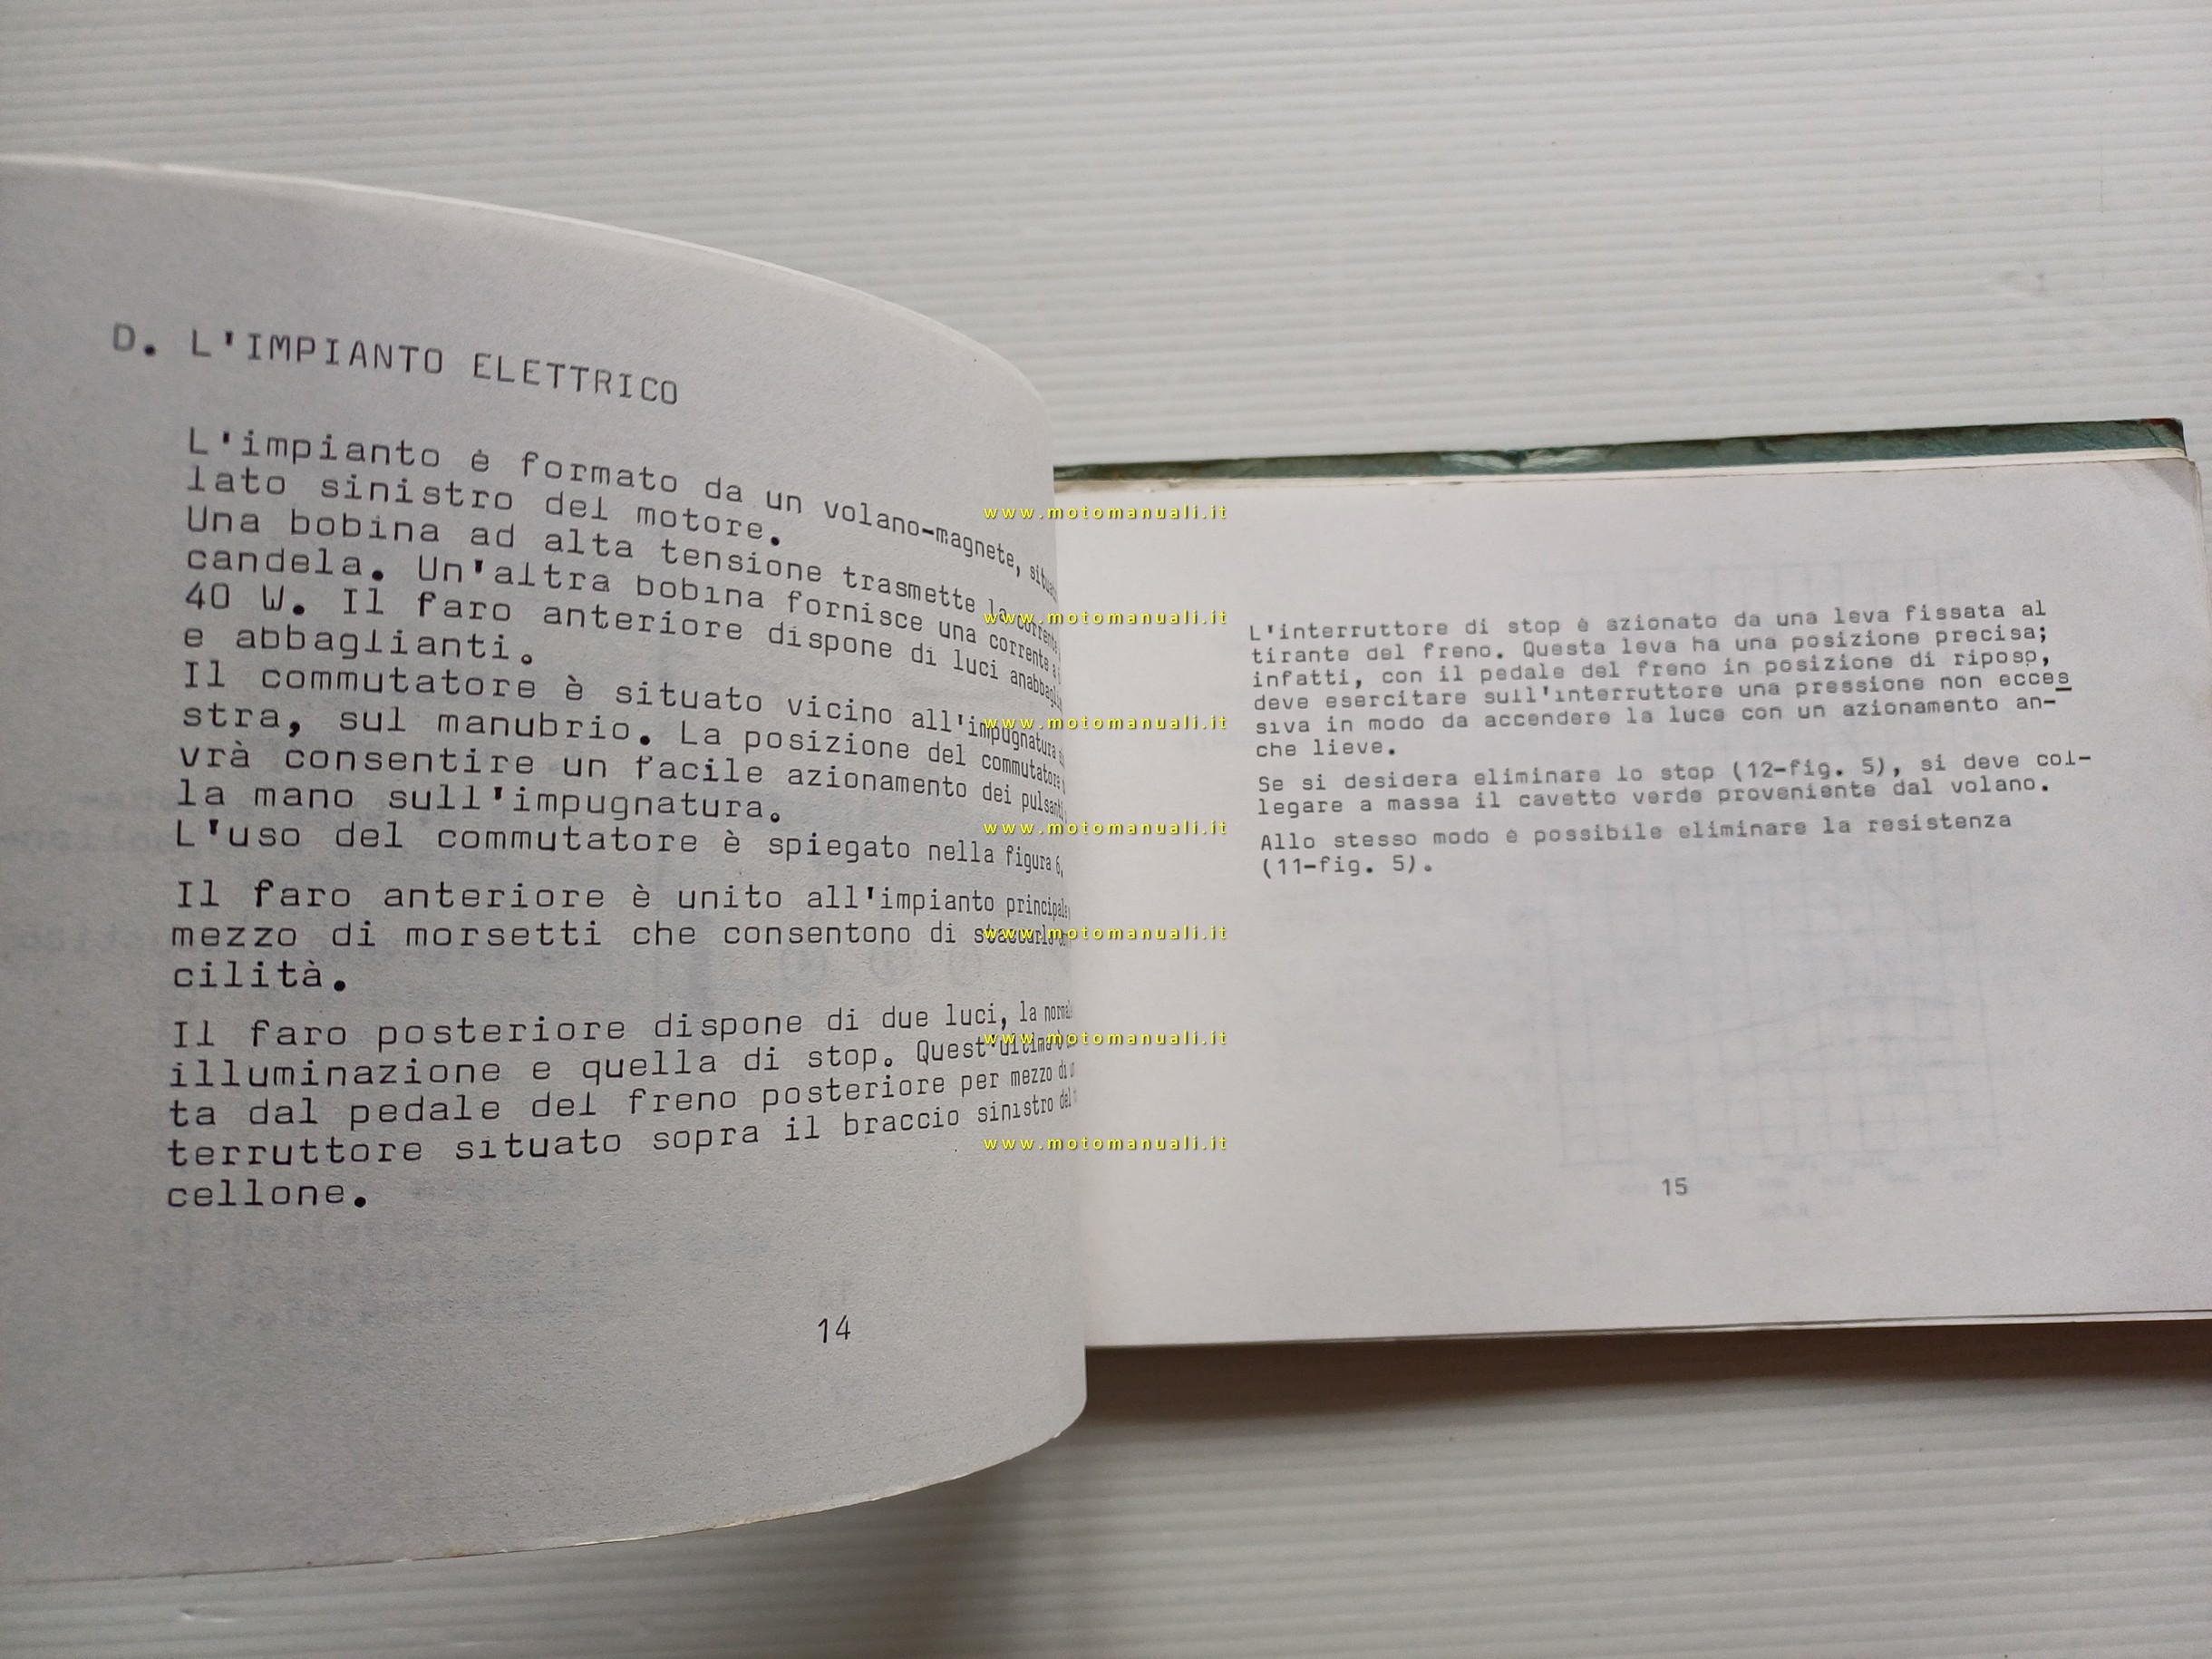 D. L'IMPIANTO ELETTRICO
L'impianto è formato da un volano-magnete,
lato sinistro del motore.
Una bobina ad alta tensione trasmette la corrente
candela. Un'altra bobina fornisce una corrente a
40 W. Il faro anteriore dispone di luci
e abbaglianti.
Il commutatore è situato vicino all'impugnatura
stra, sul manubrio. La posizione del commutatore
vrà consentire un facile azionamento dei pulsanti
la mano sull'impugnatura.
L'uso del commutatore è spiegato nella figura 6,
Il faro anteriore è unito all'impianto principale
mezzo di morsetti che consentono di
cilità.
Il faro posteriore dispone di due luci, la
illuminazione e quella di stop. Quest'ultima
ta dal pedale del freno posteriore per mezzo di
terruttore situato sopra il braccio sinistro del
cellone.
14
L'interruttore di stop è azionato da una leva fissata al
tirante del freno. Questa leva ha una posizione precisa;
infatti, con il pedale del freno in posizione di riposo,
deve esercitare sull'interruttore una pressione non ecces
siva in modo da accendere la luce con un azionamento an-
che lieve.
Se si desidera eliminare lo stop (12-fig. 5), si deve col-
legare a massa il cavetto verde proveniente dal volano.
Allo stesso modo è possibile eliminare la resistenza
(11-fig. 5).
15
www.motomanuali.it
www.motomanuali.it
www.motomanuali.it
www.motomanuali.it
www.motomanuali.it
www.motomanuali.it
www.motomanuali.it